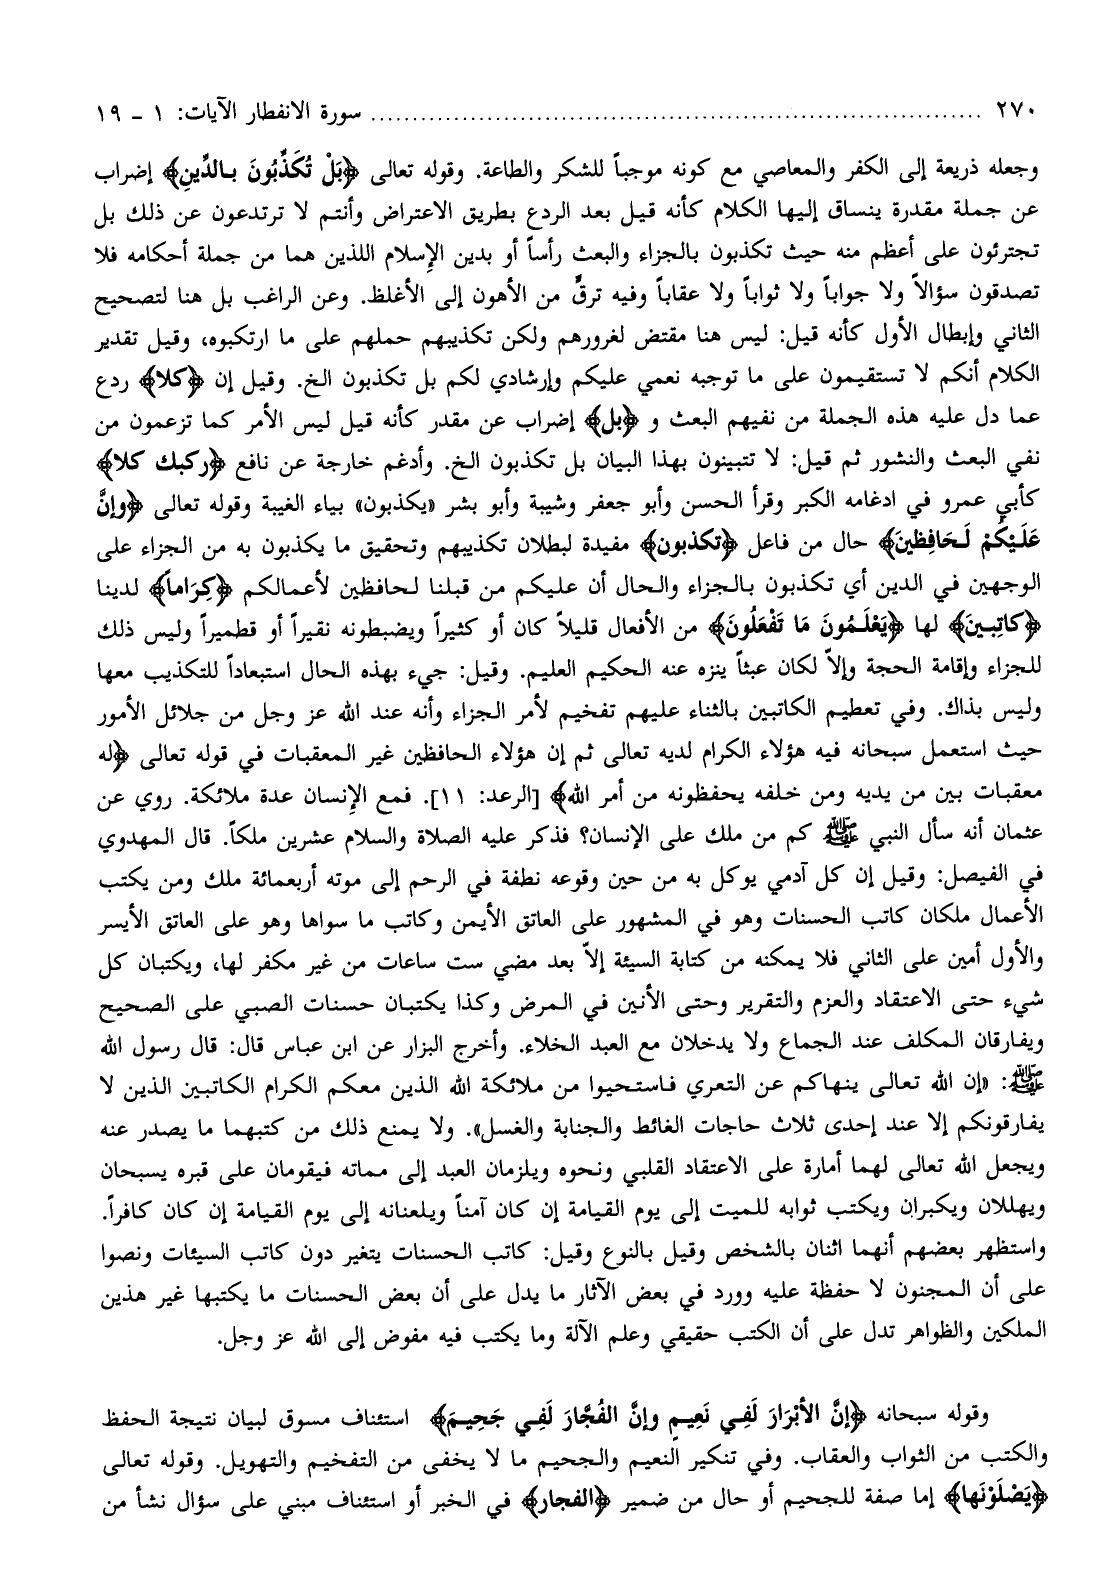 ٢٧٠ ........................................................................ سورة الانفطار الآيات: ١ - ١٩
وجعله ذريعة إلى الكفر والمعاصي مع كونه موجباً للشكر والطاعة. وقوله تعالى ﴿بَلْ تُكَذِّبُونَ بِالدِّينِ﴾ إضراب
عن جملة مقدرة ينساق إليها الكلام كأنه قيل بعد الردع بطريق الاعتراض وأنتم لا ترتدعون عن ذلك بل
تجترئون على أعظم منه حيث تكذبون بالجزاء والبعث رأساً أو بدين الإِسلام اللذين هما من جملة أحكامه فلا
تصدقون سؤالاً ولا جواباً ولا ثواباً ولا عقاباً وفيه ترقٍّ من الأهون إلى الأغلظ. وعن الراغب بل هنا لتصحيح
الثاني وإبطال الأول كأنه قيل: ليس هنا مقتض لغرورهم ولكن تكذيبهم حملهم على ما ارتكبوه، وقيل تقدير
الكلام أنكم لا تستقيمون على ما توجبه نعمي عليكم وإرشادي لكم بل تكذبون الخ. وقيل إن ﴿كلا﴾ ردع
عما دل عليه هذه الجملة من نفيهم البعث و ﴿بل﴾ إضراب عن مقدر كأنه قيل ليس الأمر كما تزعمون من
نفي البعث والنشور ثم قيل: لا تتبينون بهذا البيان بل تكذبون الخ. وأدغم خارجة عن نافع ﴿ركبك كلا﴾
كأبي عمرو في ادغامه الكبر وقرأ الحسن وأبو جعفر وشيبة وأبو بشر «يكذبون» بياء الغيبة وقوله تعالى ﴿وإنَّ
عَلَيْكُمْ لَحَافِظينَ﴾ حال من فاعل ﴿تكذبون﴾ مفيدة لبطلان تكذيبهم وتحقيق ما يكذبون به من الجزاء على
الوجهين في الدين أي تكذبون بالجزاء والحال أن عليكم من قبلنا لحافظين لأعمالكم ﴿كِرَاماً﴾ لدينا
﴿كاتِبينَ﴾ لها ﴿يَعْلَمُونَ مَا تَفْعَلُونَ﴾ من الأفعال قليلاً كان أو كثيراً ويضبطونه نقيراً أو قطميراً وليس ذلك
للجزاء وإقامة الحجة وإلاّ لكان عبثاً ينزه عنه الحكيم العليم. وقيل: جيء بهذه الحال استبعاداً للتكذيب معها
وليس بذاك. وفي تعطيم الكاتبين بالثناء عليهم تفخيم لأمر الجزاء وأنه عند الله عز وجل من جلائل الأمور
حيث استعمل سبحانه فيه هؤلاء الكرام لديه تعالى ثم إن هؤلاء الحافظين غير المعقبات في قوله تعالى ﴿له
معقبات بين من يديه ومن خلفه يحفظونه من أمر الله﴾ [الرعد: ١١]. فمع الإِنسان عدة ملائكة. روي عن
عثمان أنه سأل النبي ﷺ كم من ملك على الإنسان؟ فذكر عليه الصلاة والسلام عشرين ملكاً. قال المهدوي
في الفيصل: وقيل إن كل آدمي يوكل به من حين وقوعه نطفة في الرحم إلى موته أربعمائة ملك ومن يكتب
الأعمال ملكان كاتب الحسنات وهو في المشهور على العاتق الأيمن وكاتب ما سواها وهو على العاتق الأيسر
والأول أمين على الثاني فلا يمكنه من كتابة السيئة إلاّ بعد مضي ست ساعات من غير مكفر لها، ويكتبان كل
شيء حتى الاعتقاد والعزم والتقرير وحتى الأنين في المرض وكذا يكتبان حسنات الصبي على الصحيح
ويفارقان المكلف عند الجماع ولا يدخلان مع العبد الخلاء. وأخرج البزار عن ابن عباس قال: قال رسول الله
ﷺ: «إن الله تعالى ينهاكم عن التعري فاستحيوا من ملائكة الله الذين معكم الكرام الكاتبين الذين لا
يفارقونكم إلا عند إحدى ثلاث حاجات الغائط والجنابة والغسل». ولا يمنع ذلك من كتبهما ما يصدر عنه
ويجعل الله تعالى لهما أمارة على الاعتقاد القلبي ونحوه ويلزمان العبد إلى مماته فيقومان على قبره يسبحان
ويهللان ويكبران ويكتب ثوابه للميت إلى يوم القيامة إن كان آمناً ويلعنانه إلى يوم القيامة إن كان كافراً.
واستظهر بعضهم أنهما اثنان بالشخص وقيل بالنوع وقيل: كاتب الحسنات يتغير دون كاتب السيئات ونصوا
على أن المجنون لا حفظة عليه وورد في بعض الآثار ما يدل على أن بعض الحسنات ما يكتبها غير هذين
الملكين والظواهر تدل على أن الكتب حقيقي وعلم الآلة وما يكتب فيه مفوض إلى الله عز وجل.
وقوله سبحانه ﴿إنَّ الأبْرَارَ لَفِي نَعِيمٍ وإنَّ الفُجَّارَ لَفِي جَحِيمَ﴾ استئناف مسوق لبيان نتيجة الحفظ
والكتب من الثواب والعقاب. وفي تنكير النعيم والجحيم ما لا يخفى من التفخيم والتهويل. وقوله تعالى
﴿يَصْلَوْنَها﴾ إما صفة للجحيم أو حال من ضمير ﴿الفجار﴾ في الخبر أو استئناف مبني على سؤال نشأ من